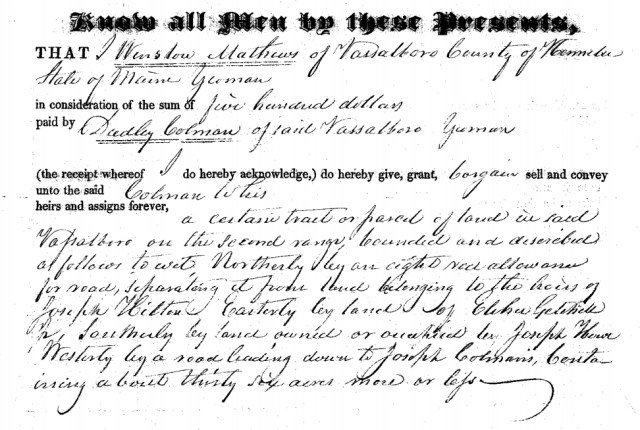 Know all Men by these Presents,
THAT I Winslow Mathews of Vassalboro County of Kennebec
State of Maine Yeoman
in consideration of the sum of five hundred dollars
paid by Dudley Colman of said Vassalboro Yeoman
(the receipt whereof I do hereby acknowledge,) do hereby give, grant, bargain sell and convey
unto the said Colman & his
heirs and assigns forever,
a certain tract or parcel of land in said
Vassalboro on the second range, bounded and discribed
as follows to wit Northerly by an eight rod allowance
for road, separating it from land belonging to the heirs of
Joseph Hilton Easterly by land of Elihu Getchell
Jr, Southerly by land owned or occupied by Joseph Howe
Westerly by a road leading down to Joseph Colmans, Conta
ining about thirty six acres more or less